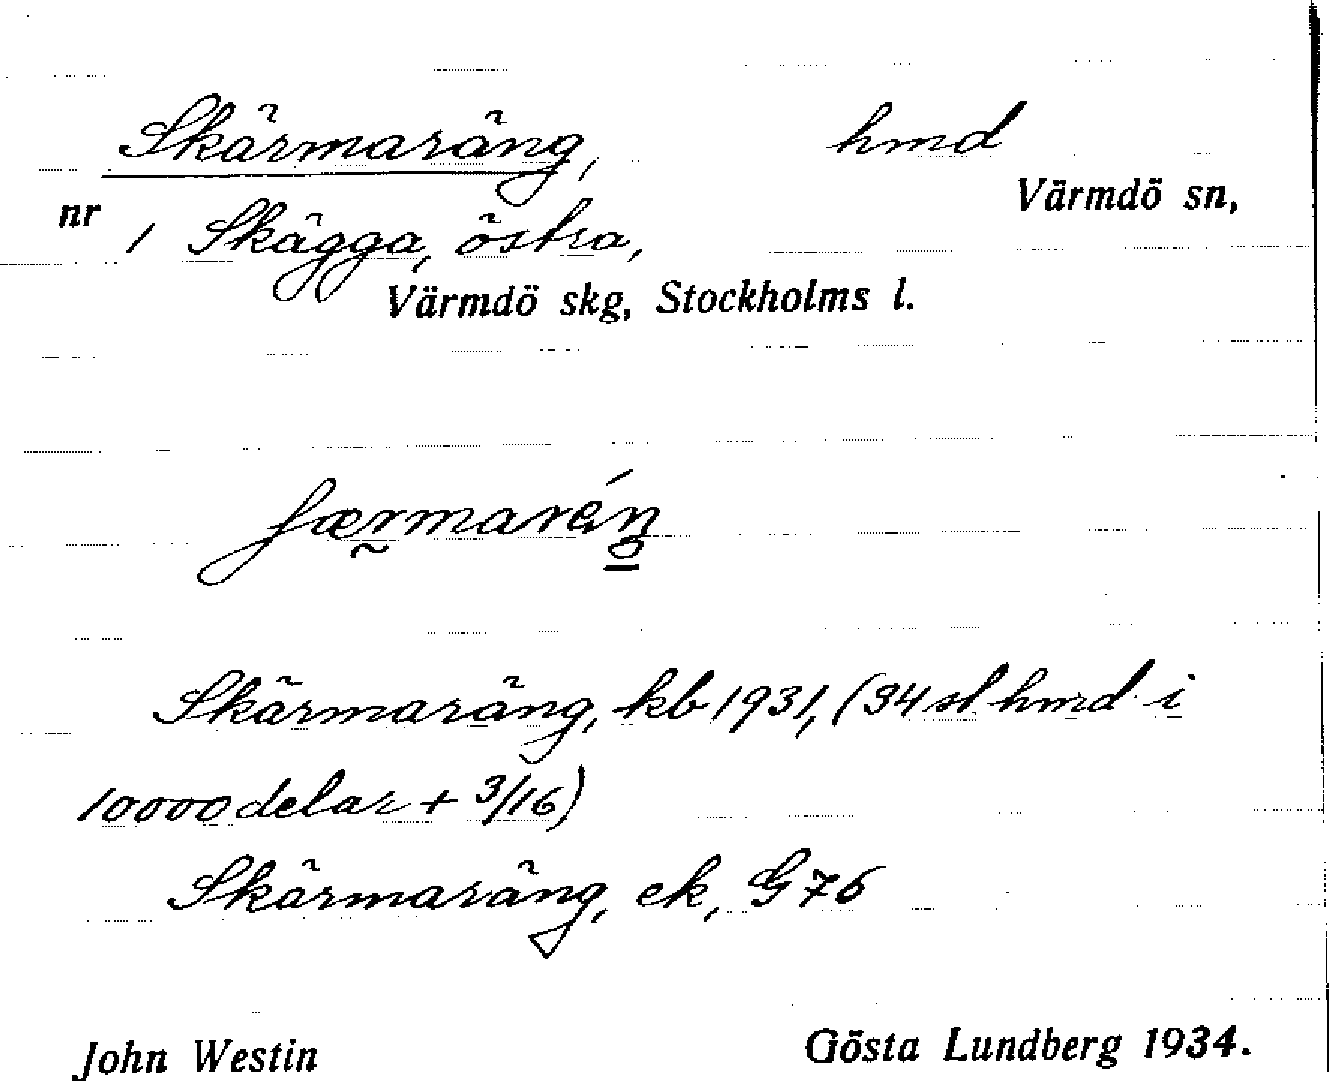 Skärmaräng, hmd
Värmdö sn,
nr 1 Skägga, östra,
Värmdö skg, Stockholms l.
ʃærmaréŋ
Skärmaräng, kb 1931, (34 st hmd i
10000 delar + 3/16)
Skärmaräng, ek, G 76
John Westin Gösta Lundberg 1934.